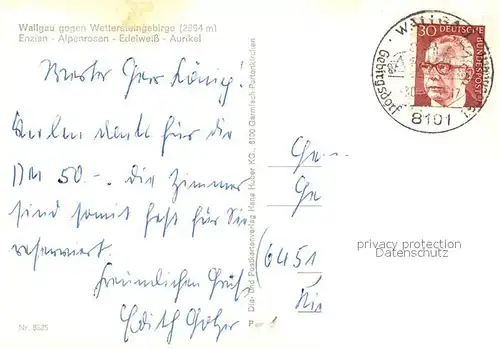 Wallgau gegen Wettersteingebirge (2964 m)
Enzian - Alpenrosen - Edelweiß - Aurikel
Werter Herr König!
Vielen Dank für die
DM 50.-. die Zimmer
sind somit fest für Sie
reserviert.
Freundlichen Gruß
Edith
Nr. 8525
Dia- und Postkartenverlag Hans Huber KG., 8100 Garmisch-Partenkirchen
30 DEUTSCHE BUNDESPOST
WALLGAU
Gebirgsdorf
8101
6451
privacy protection
Datenschutz